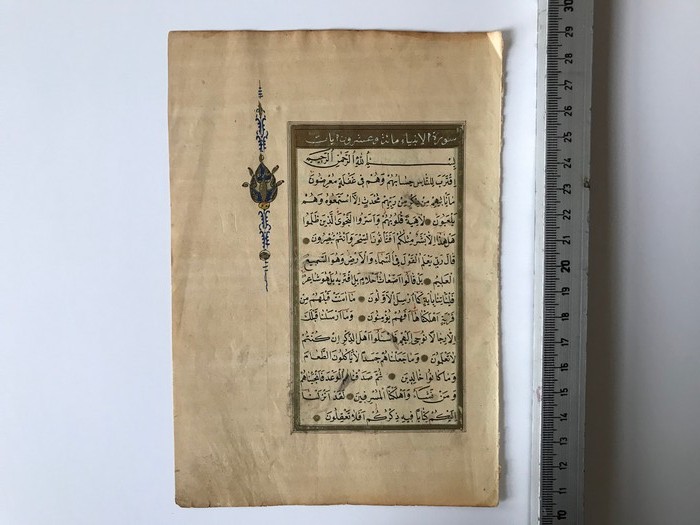 سورة الانبياء مائة وعشرون ايات
بِسْمِ اللهِ الرَّحْمٰنِ الرَّحِيمِ
اِقْتَرَبَ لِلنَّاسِ حِسَابُهُمْ وَهُمْ فِى غَفْلَةٍ مُعْرِضُونَ
مَا يَأْتِيهِمْ مِنْ ذِكْرٍ مِنْ رَبِّهِمْ مُحْدَثٍ اِلَّا اسْتَمَعُوهُ وَهُمْ
يَلْعَبُونَ لَاهِيَةً قُلُوبُهُمْ وَاَسَرُّوا النَّجْوَى الَّذِينَ ظَلَمُوا
هَلْ هٰذَا اِلَّا بَشَرٌ مِثْلُكُمْ اَفَتَأْتُونَ السِّحْرَ وَاَنْتُمْ تُبْصِرُونَ
قَالَ رَبِّى يَعْلَمُ الْقَوْلَ فِى السَّمَاءِ وَالْاَرْضِ وَهُوَ السَّمِيعُ
الْعَلِيمُ بَلْ قَالُوا اَضْغَاثُ اَحْلَامٍ بَلِ افْتَرٰيهُ بَلْ هُوَ شَاعِرٌ
فَلْيَأْتِنَا بِاٰيَةٍ كَمَا اُرْسِلَ الْاَوَّلُونَ مَا اٰمَنَتْ قَبْلَهُمْ مِنْ
قَرْيَةٍ اَهْلَكْنَاهَا اَفَهُمْ يُؤْمِنُونَ وَمَا اَرْسَلْنَا قَبْلَكَ
اِلَّا رِجَالًا نُوحِى اِلَيْهِمْ فَاسْئَلُوا اَهْلَ الذِّكْرِ اِنْ كُنْتُمْ
لَا تَعْلَمُونَ وَمَا جَعَلْنَاهُمْ جَسَدًا لَا يَأْكُلُونَ الطَّعَامَ
وَمَا كَانُوا خَالِدِينَ ثُمَّ صَدَقْنَاهُمُ الْوَعْدَ فَاَنْجَيْنَاهُمْ
وَمَنْ نَشَاءُ وَاَهْلَكْنَا الْمُسْرِفِينَ لَقَدْ اَنْزَلْنَا
اِلَيْكُمْ كِتَابًا فِيهِ ذِكْرُكُمْ اَفَلَا تَعْقِلُونَ
30
29
28
27
26
25
24
23
22
21
20
19
18
17
16
15
14
13
12
11
10